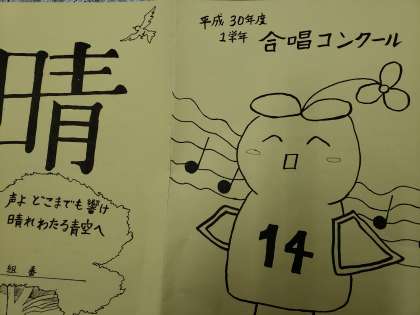 平成30年度
1学年 合唱コンクール
晴
声よ どこまでも 響け
晴れわたる青空へ
組 番
14